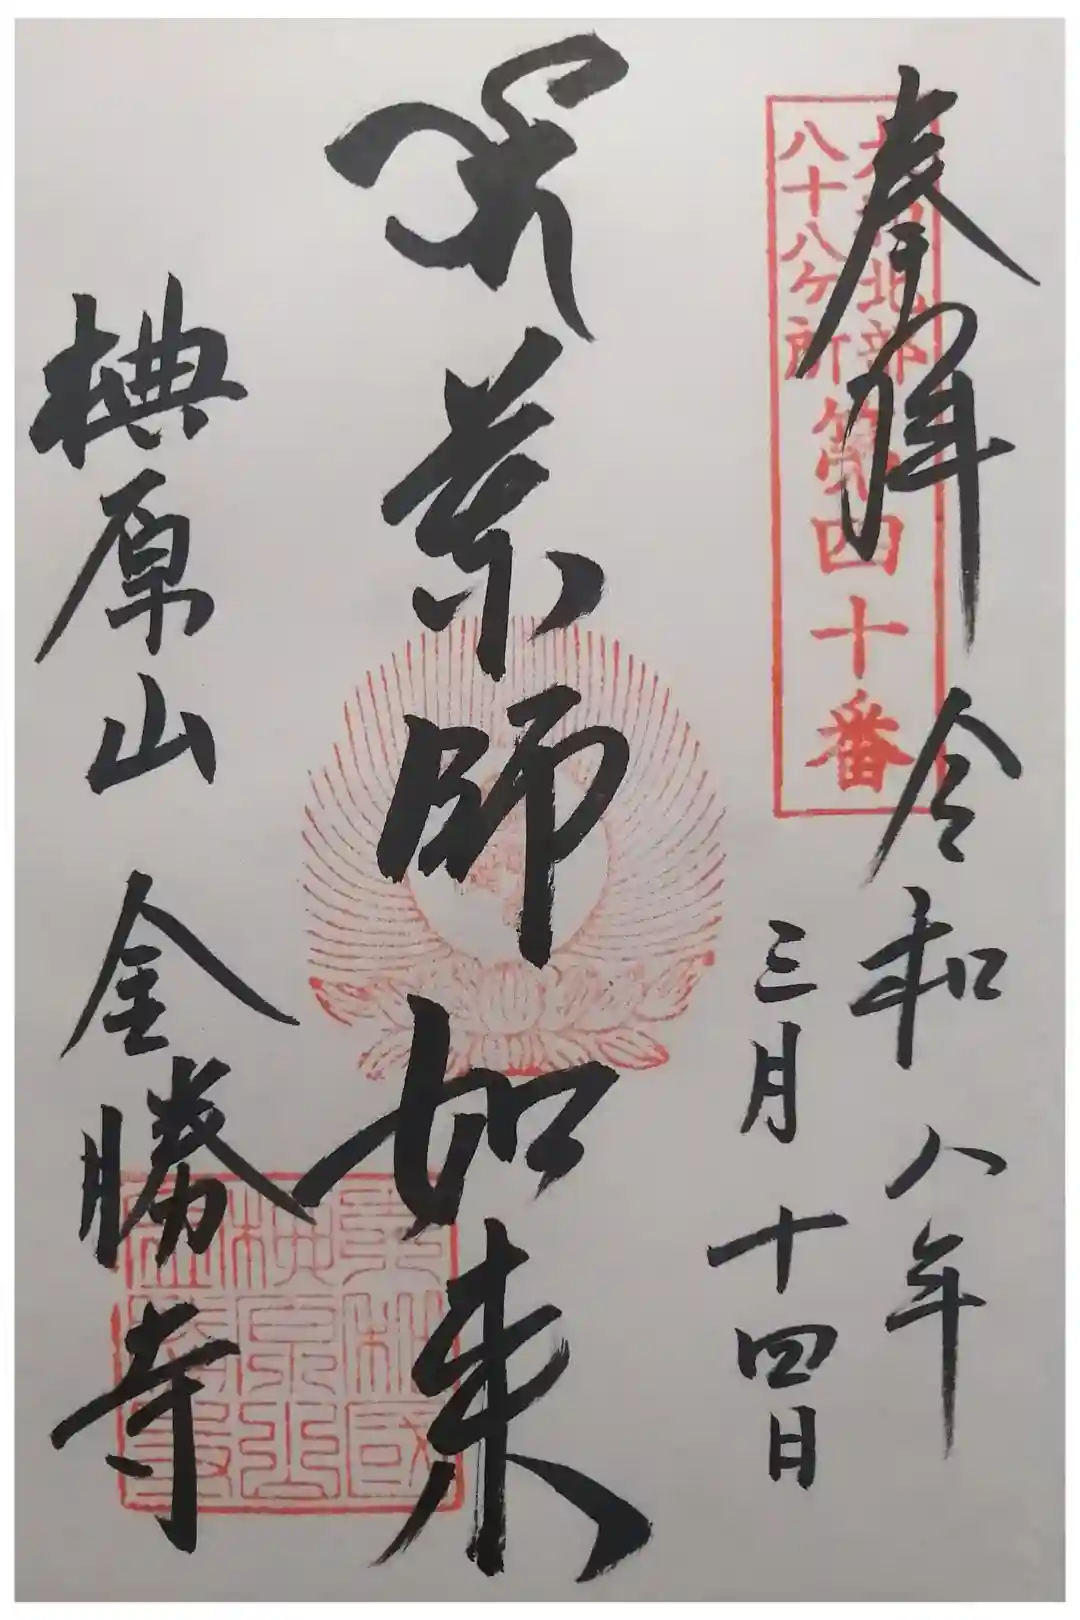 奉拝 令和八年
三月十四日
大和北部
八十八ヶ所
第四十番
薬師如来
椣原山 金勝寺